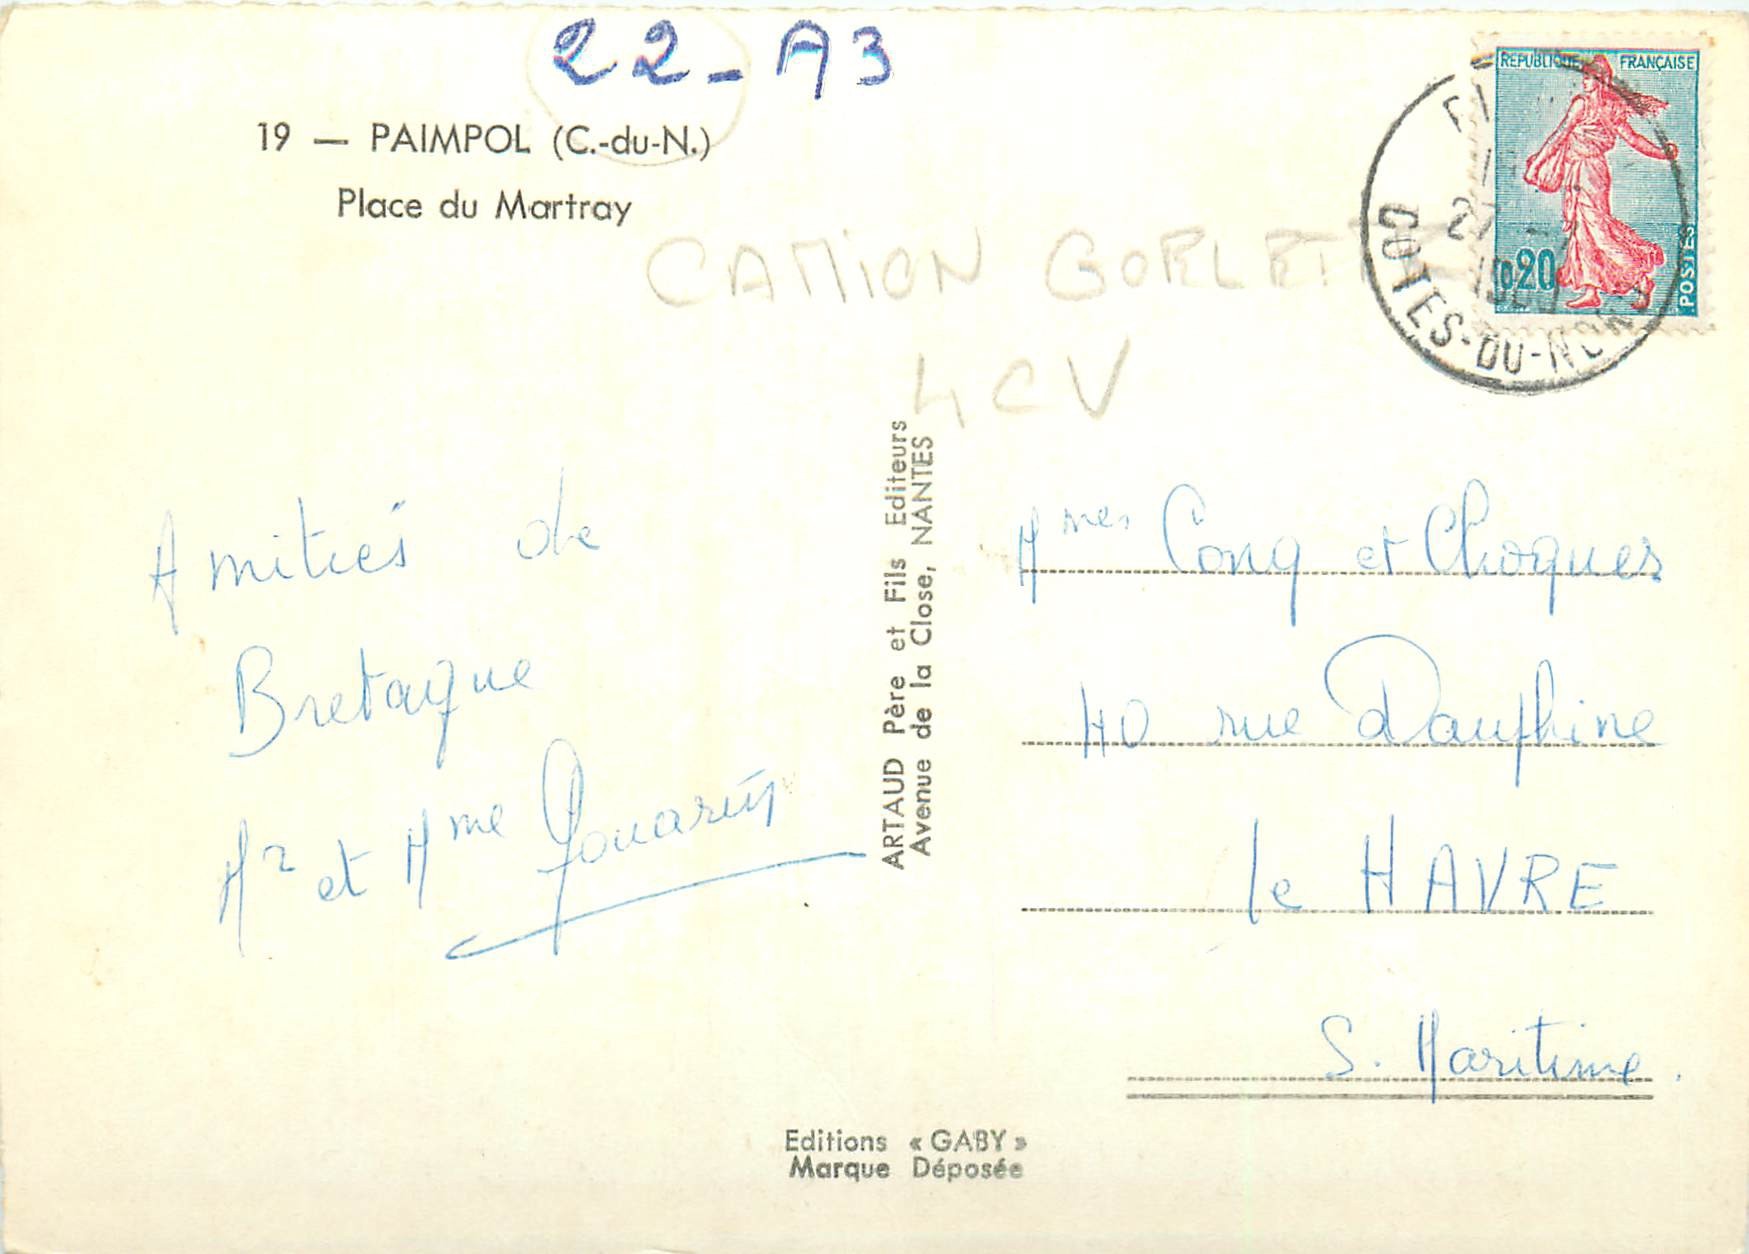 22-A3
19 — PAIMPOL (C.-du-N.)
Place du Martray
REPUBLIQUE FRANÇAISE
0,20
POSTES
COTES-DU-NORD
CAMION
4CV
Amitiés de
Bretagne
Mr et Mme
ARTAUD Père et Fils Editeurs
Avenue de la Close, NANTES
Mmes Conq et Choques
40 rue Dauphine
le HAVRE
S. Maritime.
Editions « GABY »
Marque Déposée